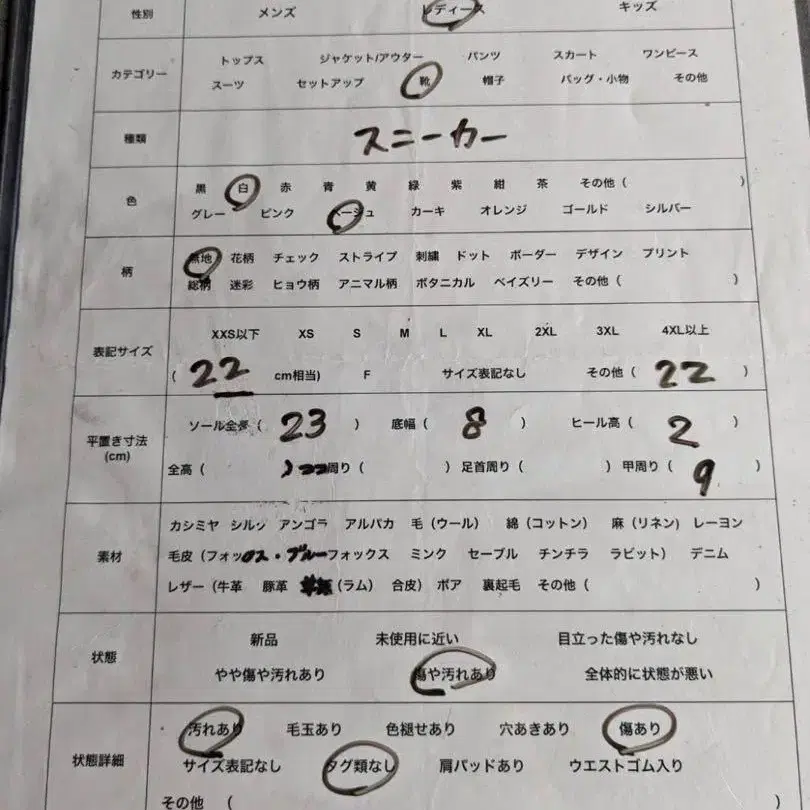 性別 メンズ レディース キッズ
カテゴリー トップス ジャケット/アウター パンツ スカート ワンピース
スーツ セットアップ 靴 帽子 バッグ・小物 その他
種類 スニーカー
色 黒 白 赤 青 黄 緑 紫 紺 茶 その他（ ）
グレー ピンク ベージュ カーキ オレンジ ゴールド シルバー
柄 無地 花柄 チェック ストライプ 刺繍 ドット ボーダー デザイン プリント
総柄 迷彩 ヒョウ柄 アニマル柄 ボタニカル ペイズリー その他（ ）
表記サイズ XXS以下 XS S M L XL 2XL 3XL 4XL以上
（ 22 cm相当) F サイズ表記なし その他（ 22 ）
平置き寸法 (cm) ソール全長（ 23 ） 底幅（ 8 ） ヒール高（ 2 ）
全高（ ） 周り（ ） 足首周り（ ） 甲周り（ 9 ）
素材 カシミヤ シルク アンゴラ アルパカ 毛（ウール） 綿（コットン） 麻（リネン） レーヨン
毛皮（フォックス・ブルーフォックス ミンク セーブル チンチラ ラビット） デニム
レザー（牛革 豚革 （ラム） 合皮） ボア 裏起毛 その他（ ）
状態 新品 未使用に近い 目立った傷や汚れなし
やや傷や汚れあり 傷や汚れあり 全体的に状態が悪い
状態詳細 汚れあり 毛玉あり 色褪せあり 穴あきあり 傷あり
サイズ表記なし タグ類なし 肩パッドあり ウエストゴム入り
その他 （ ）